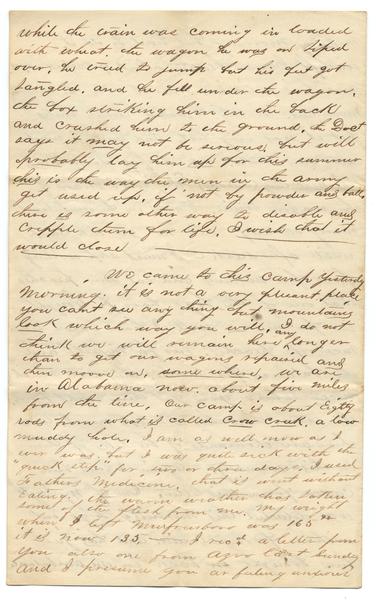 while the train was coming in loaded
with wheat, the wagon he was on tiped
over, he tried to jump but his feet got
tangled, and he fell under the wagon,
the box striking him in the back
and crushed him to the ground, the Doct
says it may not be serious, but will
probably lay him up for this summer
this is the way the men in the army
get used up, if not by powder and ball
there is some other way to disable and
cripple them for life, I wish that it
would close
We came to this Camp Yesterday
Morning. it is not a very plesant place
you cant see any thing but mountains
look which way you will, I do not
think we will remain here any longer
than to get our wagons repaired and
then moove on, some where, we are
in Alabama now. about five miles
from the line, Our camp is about Eighty
rods from what is called Crow Creek, a low
muddy hole, I am as well now as I
ever was, but I was quite sick with the
"quick step" for two or three days, I used
Fathers Medicine, that is went without
Eating. the warm weather has taken
some of the flesh from me. My weight
when I left Murfreesboro was 165
it is now 135 I recd a letter from
you also one from Agro last Sunday
and I presume you are feeling